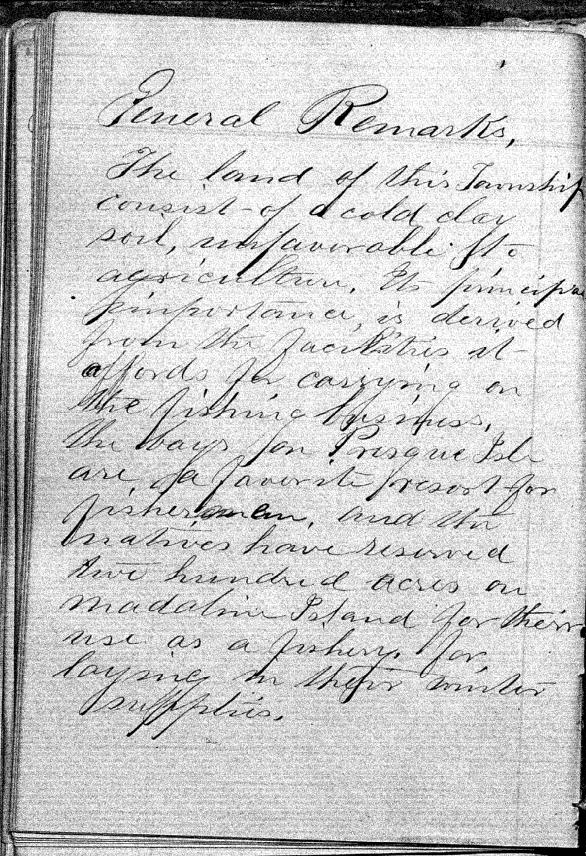 General Remarks,
The land of this Township
consist of a cold clay
soil, unfavorable to
agriculture. Its principa
importance, is derived
from the facilities it
affords for carrying on
the fishing business.
The bays on Presque Isle
are a favorite resort for
fishermen, and the
natives have reserved
two hundred acres on
Madaline Island for their
use as a fishery, for
laying in their winter
supplies.